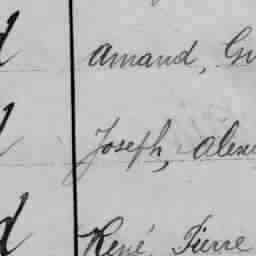 Amand, Gu
Joseph, Alex
René, Pierre